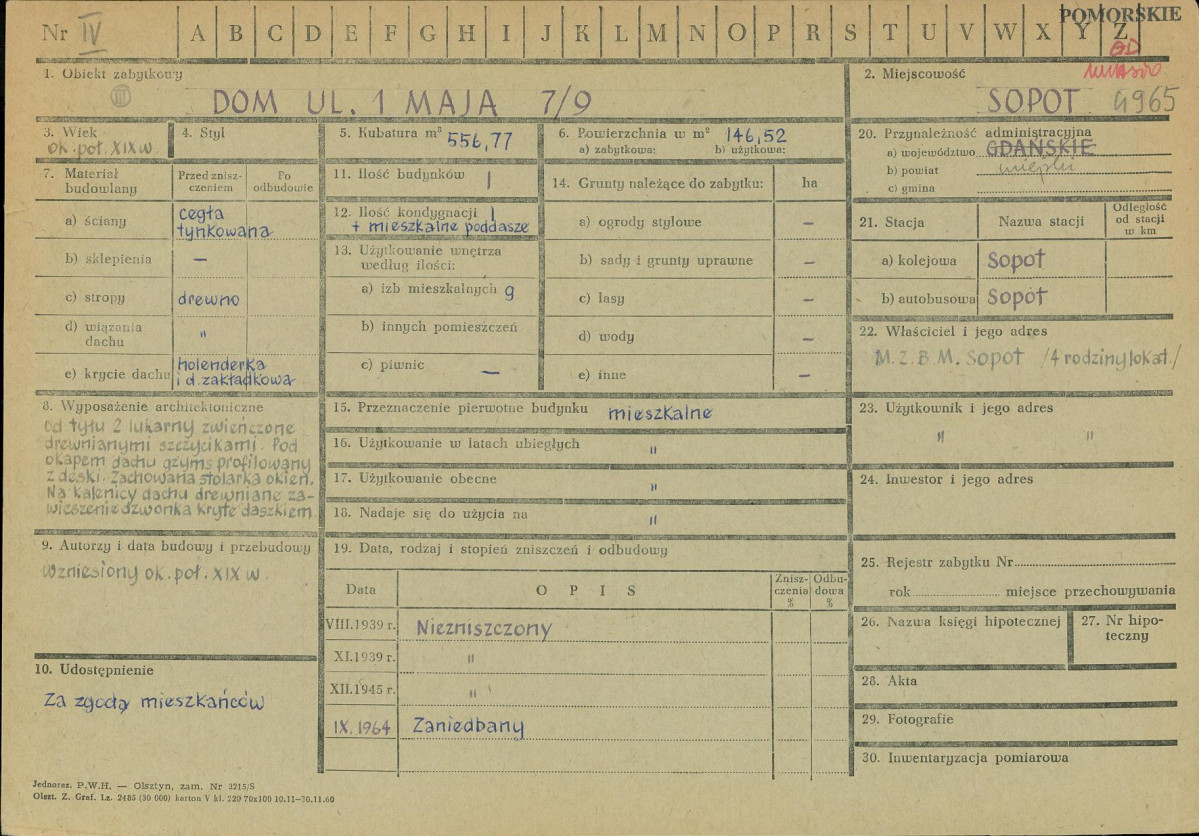 Nr IV
A B C D E F G H I J K L M N O P R S T U V W X Y Z
POMORSKIE
1. Obiekt zabytkowy
III
DOM UL. 1 MAJA 7/9
2. Miejscowość
SOPOT 4965
3. Wiek
ok. poł. XIX w.
4. Styl
5. Kubatura m³ 556,77
6. Powierzchnia w m² 146,52
a) zabytkowa: b) użytkowa:
7. Materiał budowlany
Przed zniszczeniem
Po odbudowie
a) ściany
cegła
tynkowana
b) sklepienia —
c) stropy drewno
d) wiązania
dachu "
e) krycie dachu
holenderka
i d. zakładkowa
8. Wyposażenie architektoniczne
od tyłu 2 lukarny zwieńczone
drewnianymi szczycikami. Pod
okapem dachu gzyms profilowany
z deski. Zachowana stolarka okien.
Na kalenicy dachu drewniane za-
wieszenie dzwonka kryte daszkiem
9. Autorzy i data budowy i przebudowy
Wzniesiony ok. poł. XIX w.
10. Udostępnienie
Za zgodą mieszkańców
11. Ilość budynków 1
12. Ilość kondygnacji 1
+ mieszkalne poddasze
13. Użytkowanie wnętrza
według ilości:
a) izb mieszkalnych 9
b) innych pomieszczeń
c) piwnic —
14. Grunty należące do zabytku: ha
a) ogrody stylowe —
b) sady i grunty uprawne —
c) lasy —
d) wody —
e) inne —
15. Przeznaczenie pierwotne budynku mieszkalne
16. Użytkowanie w latach ubiegłych "
17. Użytkowanie obecne "
18. Nadaje się do użycia na "
19. Data, rodzaj i stopień zniszczeń i odbudowy
Data
OPIS
Znisz-
czenia
%
Odbu-
dowa
%
VIII.1939 r. Niezniszczony
XI.1939 r. "
XII.1945 r. "
IX.1964 Zaniedbany
20. Przynależność administracyjna
a) województwo GDAŃSKIE
b) powiat miejski
c) gmina
21. Stacja
Nazwa stacji
Odległość
od stacji
w km
a) kolejowa Sopot
b) autobusowa Sopot
22. Właściciel i jego adres
M.Z.B.M. Sopot /4 rodziny lokat./
23. Użytkownik i jego adres
" "
24. Inwestor i jego adres
25. Rejestr zabytku Nr
rok miejsce przechowywania
26. Nazwa księgi hipotecznej
27. Nr hipo-
teczny
28. Akta
29. Fotografie
30. Inwentaryzacja pomiarowa
Jednoraz. P.W.H. — Olsztyn, zam. Nr 3215/S
Olszt. Z. Graf. Lz. 2485 (30 000) karton V kl. 220 70x100 10.11—30.11.60